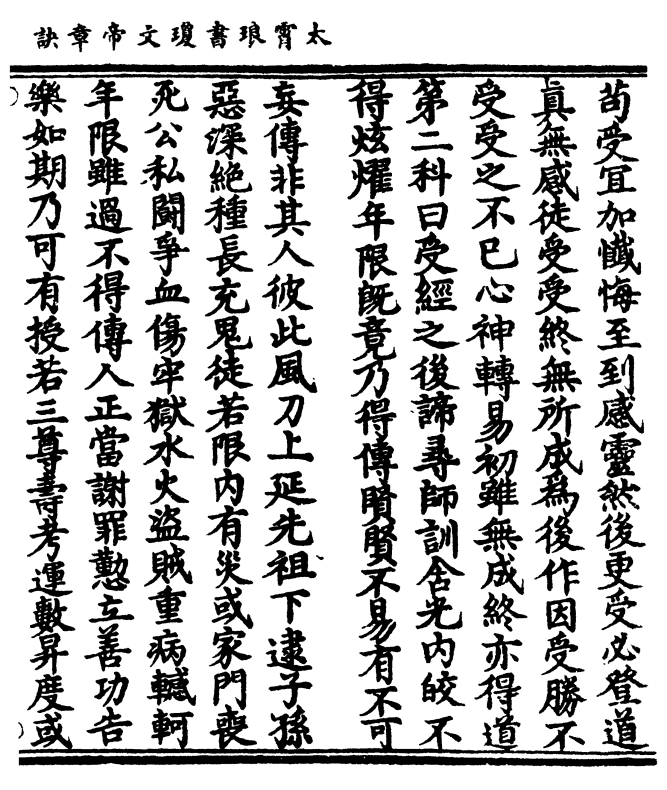 太霄琅書瓊文帝章訣
茍受宜加懺悔至到感靈然後更受必登道
真無感徒受受終無所成為後作因受勝不
受受之不已心神轉易初雖無成終亦得道
第二科曰受經之後諦尋師訓含光內皎不
得炫燿年限既竟乃得傳賢賢不易有不可
妄傳非其人彼此風刀上延先祖下逮子孫
惡深絕種長充鬼徒若限內有災或家門喪
死公私鬪爭血傷牢獄水火盜賊重病轗軻
年限雖過不得傳人正當謝罪懃立善功告
樂如期乃可有授若三尊壽考運數昇度或